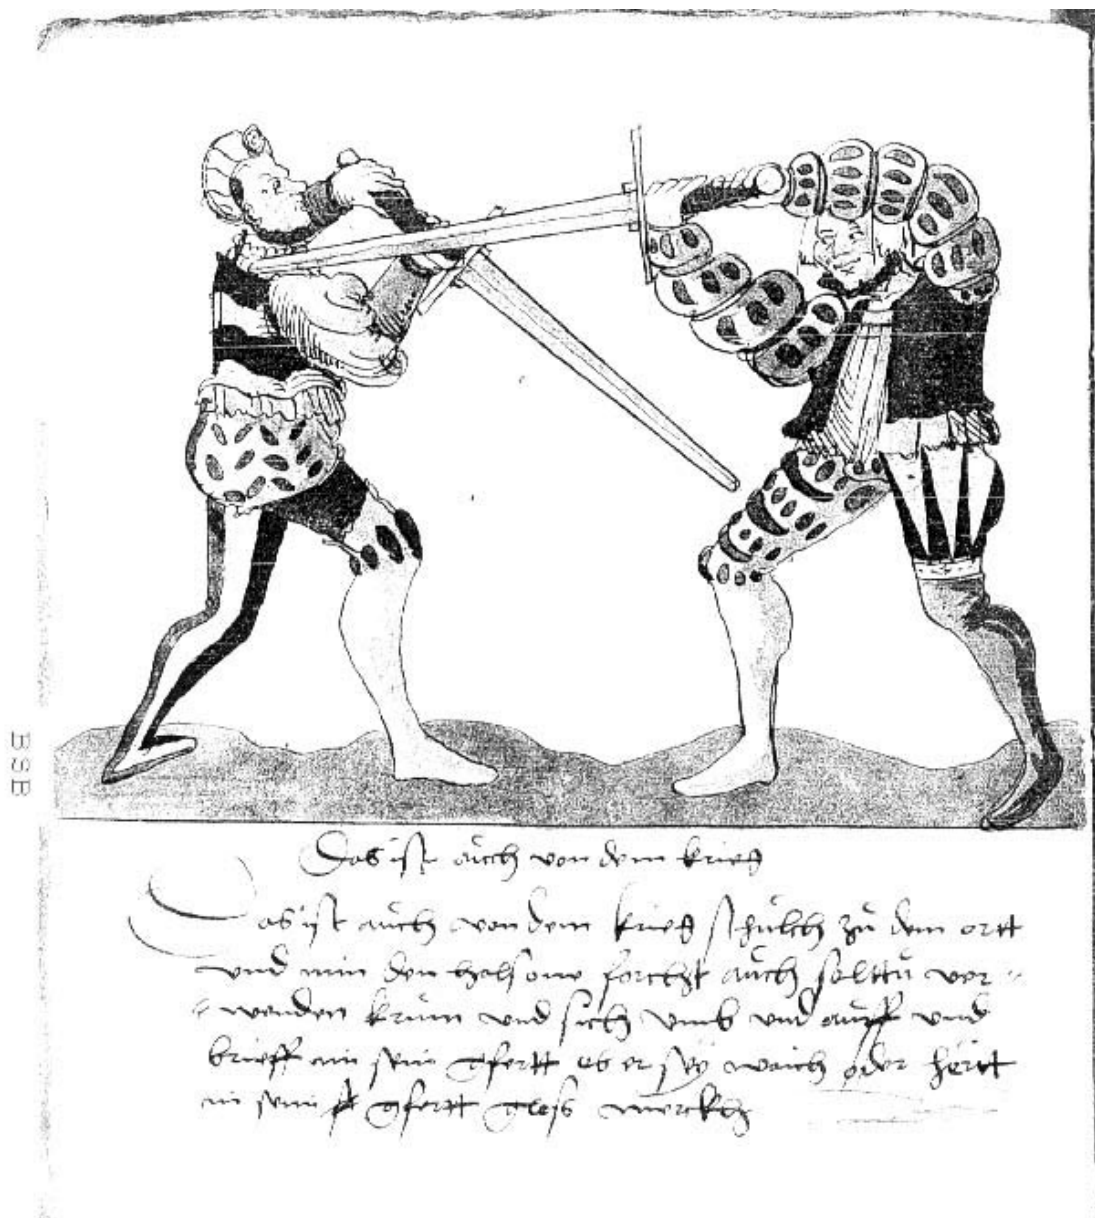 Das ist auch von dem krieg
Das ist auch von dem krieg schūlch zū dem ortt
vnd nim den hals one forcht auch solttu ver=
=wenden krūm vnd sich vmb vnd auff vnd
brieff im sein gfertt eb er sey waich oder hērtt
in sein gfertt gleſs merckh
BSB